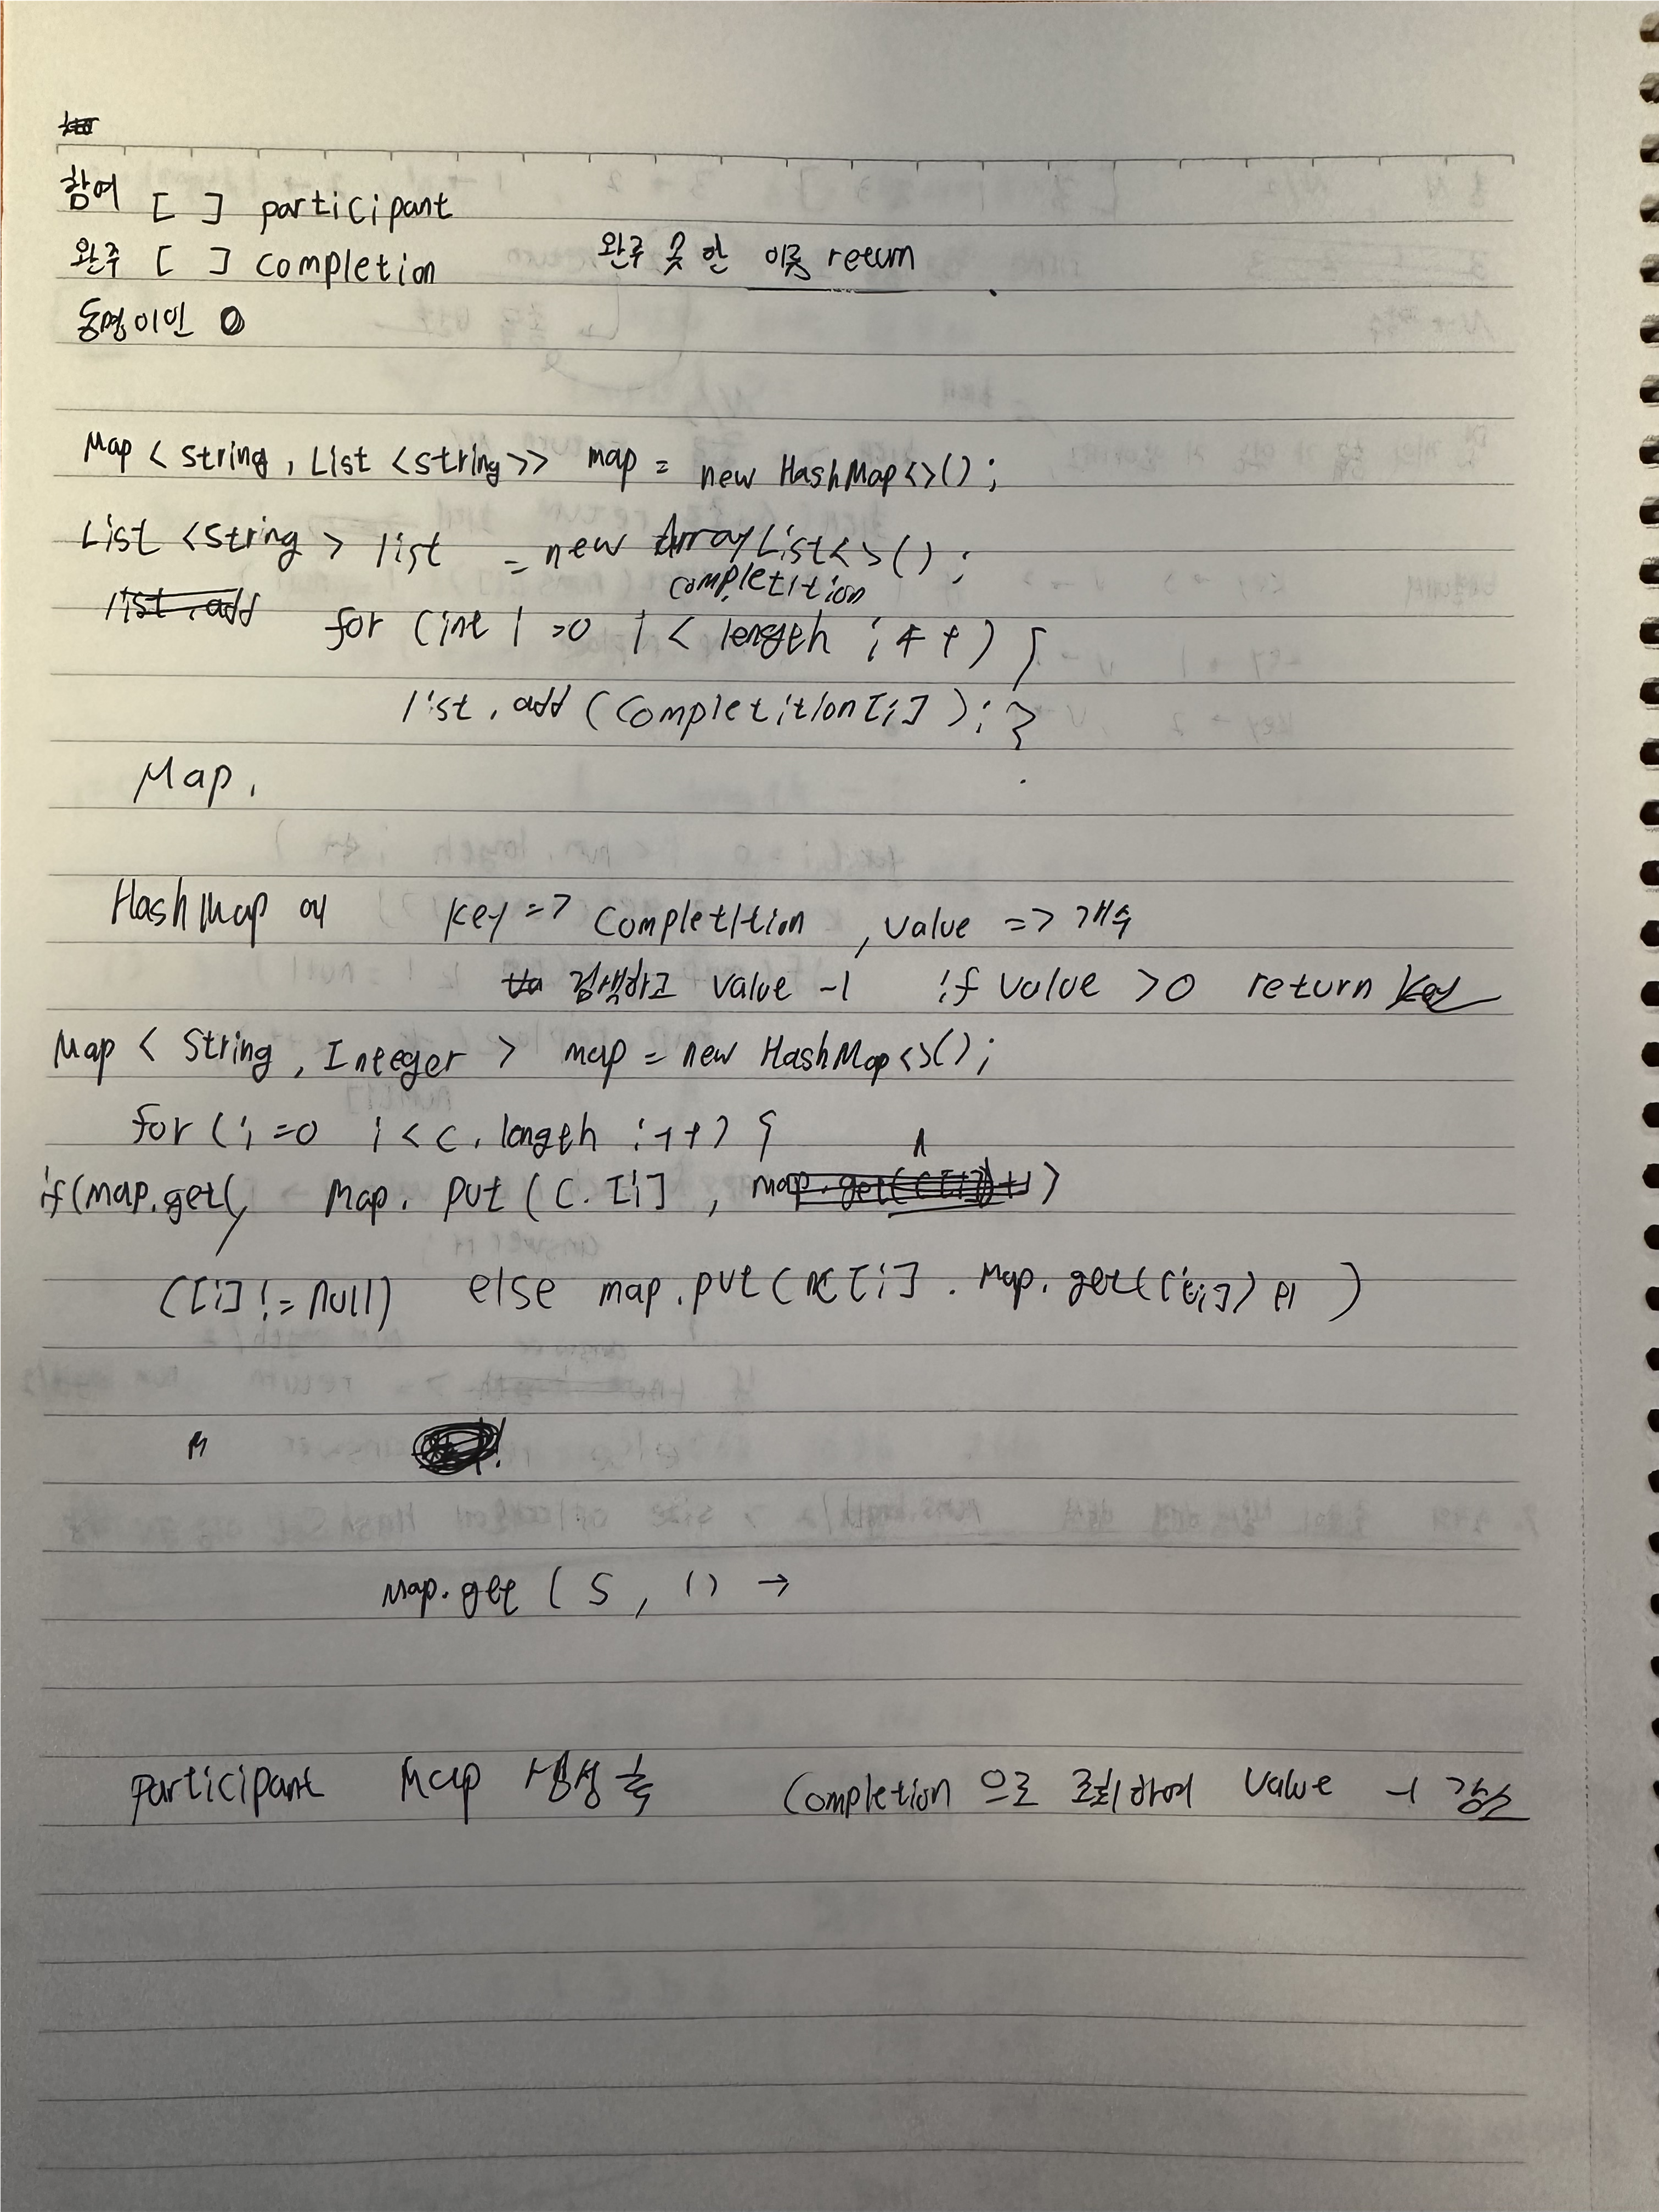 참여 [ ] participant
완주 [ ] completion 완주 못 한 이름 return
동명이인 O
Map < String , List <String>> map = new HashMap<>();
List <String> list = new ArrayList<>();
list.add completition
for (int i =0 i < length i++) {
list.add (completition[i]); }
Map.
HashMap에 key => completition , value => 개수
검색하고 value -1 if value >0 return key
Map < String , Integer > map = new HashMap<>();
for (i=0 i<c.length i++) {
if(map.get( Map. put (C.[i] , map.get(C[i])+1)
C[i] != null) else map.put(C[i] . Map.get(C[i]) +1 )
Map.get ( S , 1) →
participant Map 생성 후 Completion 으로 조회하여 Value -1 감소